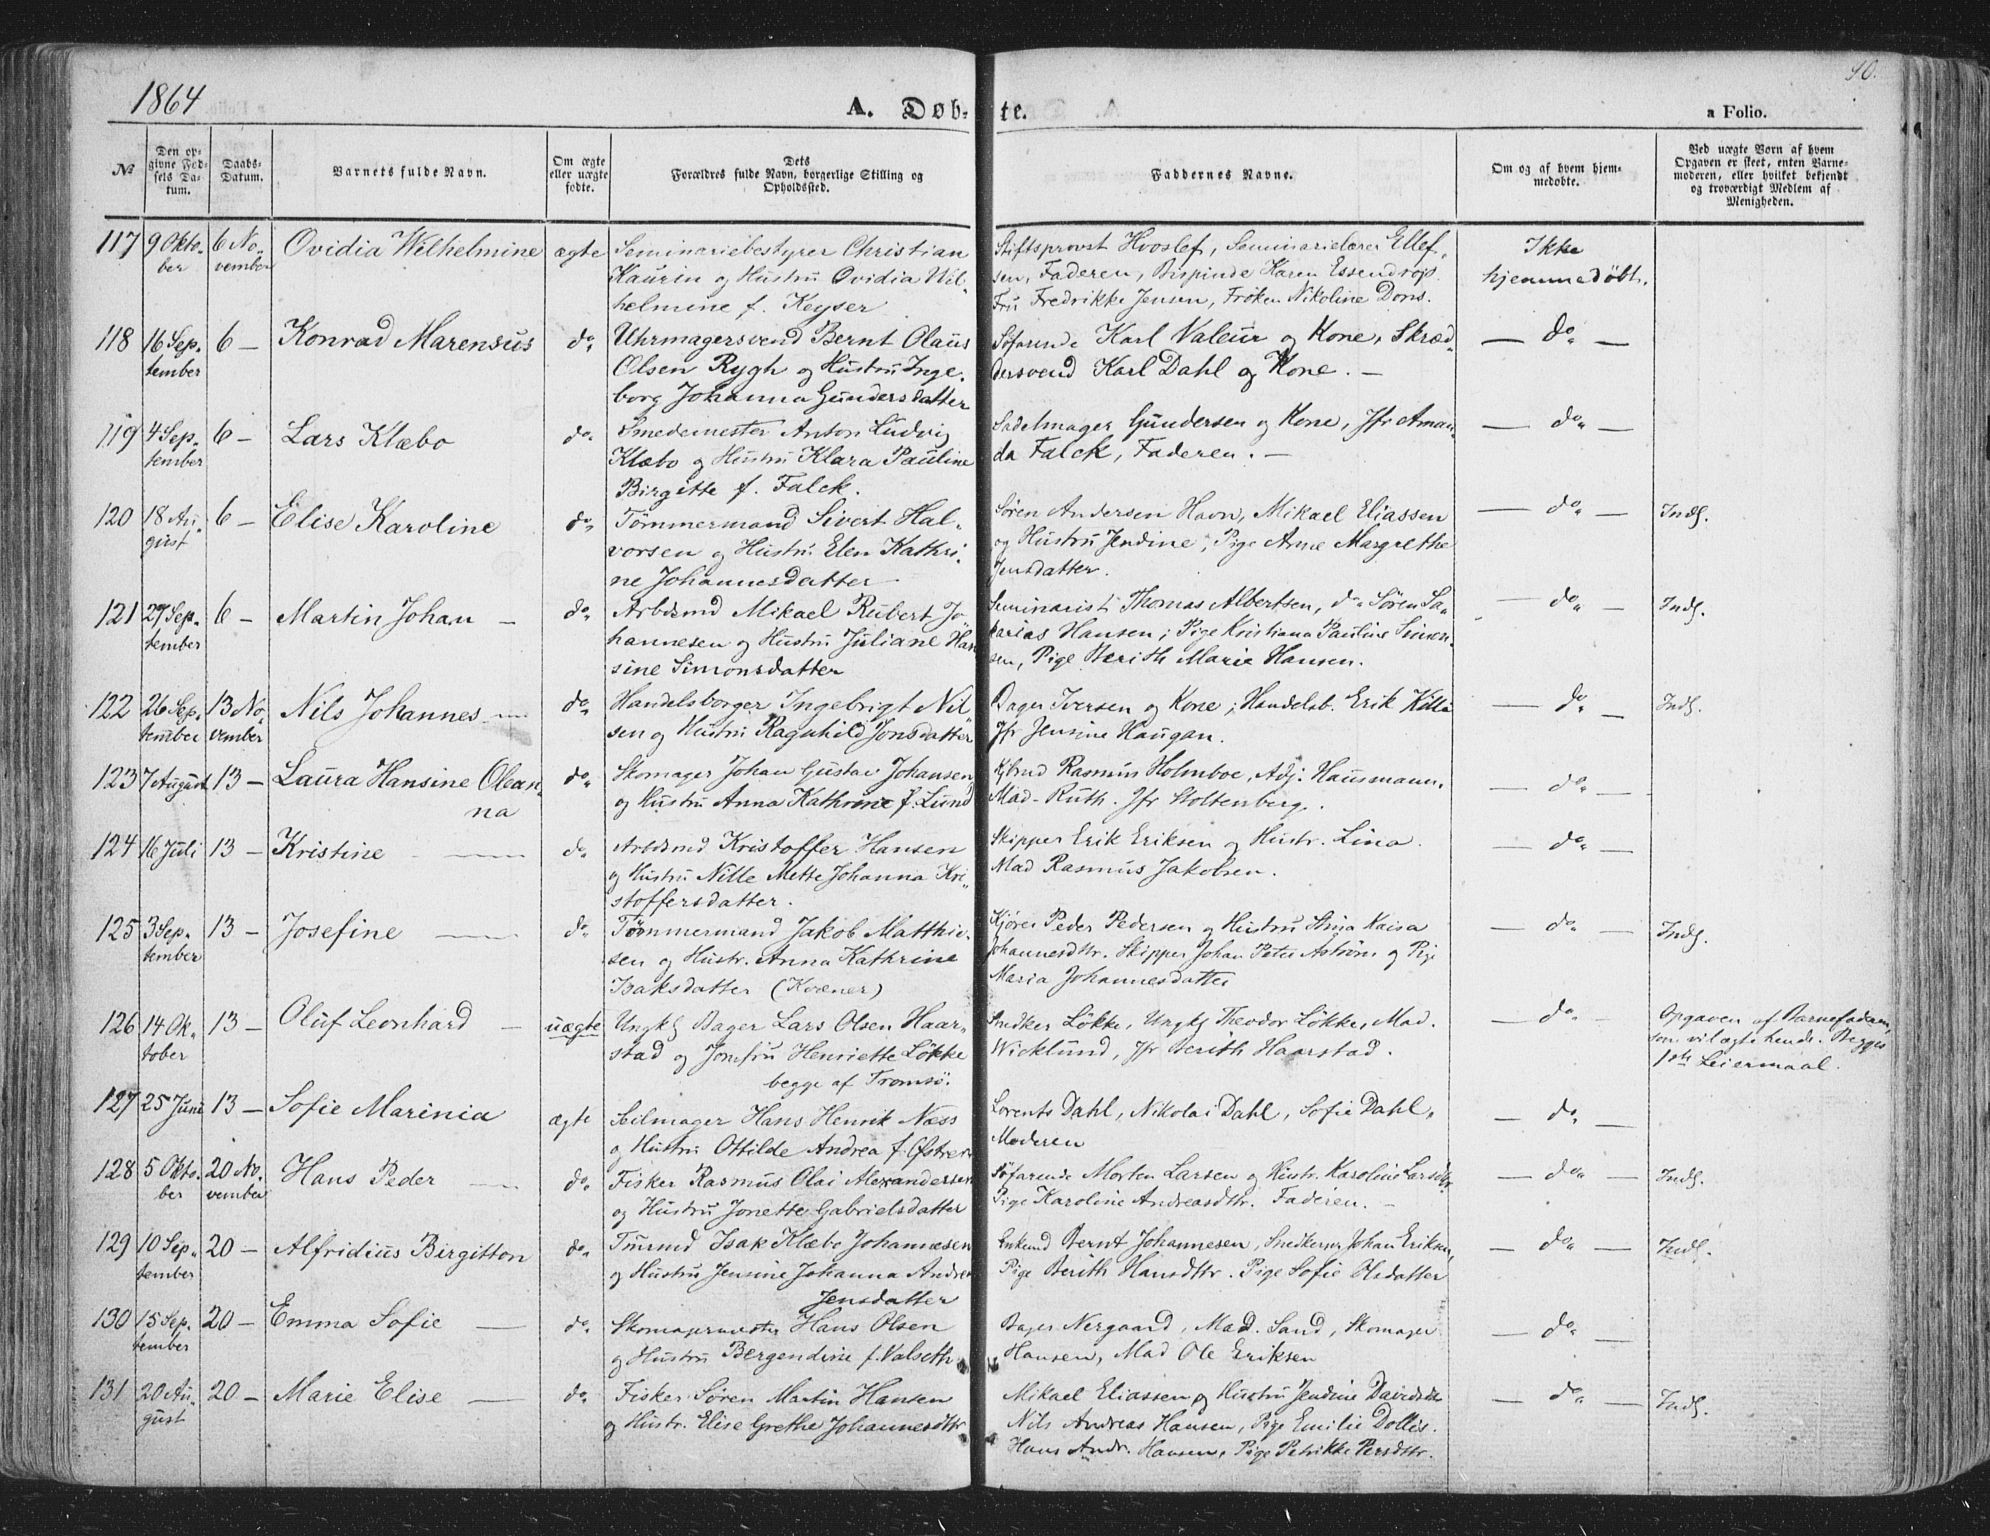 1864
A. Døb-
te.
a Folio.
40.
№
Den op-
givne Fød-
sels Da-
tum.
Daabs-
Datum.
Barnets fulde Navn.
Om ægte
eller uægte
fødte.
Dets
Forældres fulde Navn, borgerlige Stilling og
Opholdssted.
Faddernes Navne.
Om og af hvem hjem-
medøbte.
Ved uægte Børn af hvem
Opgaven er skeet, enten Barne-
moderen, eller hvilket bekjendt
og troværdigt Medlem af
Menigheden.
117 9 Okto- 6 No- Ovidia Wilhelmine ægte Seminariebestyrer Christian Stiftsprovst Hvoslef, Seminarielærer Ellef- Ikke
ber vember Kaurin og Hustru Ovidia Wil- sen, Faderen, Bispinde Karen Essendrop hjemmedøbt.
helmine f. Keyser Fru Fredrikke Jensen, Frøken Nikoline Dons.
118 16 Sep- 6 — Konrad Marensius do. Uhrmagersvend Bernt Olaus Søfarende Karl Valeur og Kone, Skræd- — do. —
tember Olsen Rygh og Hustru Inge- dersvend Karl Dahl og Kone. —
borg Johanna Gundersdatter
119 4 Sep- 6 — Lars Klæbo do. Smedemester Anton Ludvig Sadelmager Gundersen og Kone, Jfr Aman- — do. —
tember Klæbo og Hustru Klara Pauline da Falck, Faderen. —
Birgitte f. Falck.
120 18 Au- 6 — Elise Karoline do. Tømmermand Sivert Hal- Søren Andersen Havn, Mikael Eliassen — do. — Inds.
gust vorsen og Hustru Elen Kathri- og Hustru Jendine, Pige Arne Margrethe
ne Johannesdatter Jensdatter.
121 27 Sep- 6 — Martin Johan — do. Arbdsmd Mikael Rubert Jo- Seminarist Thomas Albertsen, do. Søren Sa- — do. — Inds.
tember hannesen og Hustru Juliane Han karias Hansen, Pige Kristiana Pauline Simon-
sine Simonsdatter sen, Pige Berith Marie Hansen.
122 26 Sep- 13 No- Nils Johannes — do. Handelsborger Ingebrigt Nil- Bager Iversen og Kone, Handelsb. Erik Killi — do. — Inds.
tember vember sen og Hustru Ragnhild Jonsdatter Jfr Jensine Haugan.
123 7 August 13 — Laura Hansine Olean- do. Skomager Johan Gustav Johansen Kjbmd Rasmus Holmboe, Adj. Hausmann. — do. —
na og Hustru Anna Kathrine f. Lund Mad. Ruth. Jfr Stoltenberg.
124 16 Juli 13 — Kristine — do. Arbdsmd Kristoffer Hansen Skipper Erik Eriksen og Hustr. Lina. — do. —
og Hustru Nille Mette Johanna Kri- Mad Rasmus Jakobsen.
stoffersdatter.
125 3 Sep- 13 — Josefine — do. Tømmermand Jakob Matthie- Kjører Peder Pedersen og Hustru Stina Kaisa — do. — Inds.
tember sen og Hustr. Anna Kathrine Johannesdtr. Skipper Johan Peter Astrøm og Pige
Isaksdatter (Kvæner) Maria Johannesdatter
126 14 Ok- 13 — Oluf Leonhard — uægte Ungks Bager Lars Olsen Haar- Snedker Løkke, Ungks Theodor Løkke, Mad. — do. — Opgaven af Barnefaderen,
tober stad og Jomfru Henriette Løkke Wicklund, Jfr Berith Haarstad. som vil ægte hende. Begges
begge af Tromsø. 1ste Leiermaal.
127 25 Juni 13 — Sofie Marinia ægte Seilmager Hans Henrik Næss Lorents Dahl, Nikolai Dahl, Sofie Dahl, — do. —
og Hustru Ottilde Andrea f. Østrem Moderen
128 5 Okto- 20 No- Hans Peder — do. Fisker Rasmus Olai Alexandersen Søfarende Morten Larsen og Hustr. Karoline Larsdtr. — do. — Inds.
ber vember og Hustru Jonette Gabrielsdatter Pige Karoline Andreasdtr. Faderen. —
129 10 Sep- 20 — Alfridius Birgitton do. Isak Klæbo Johannesen Enkemd Bernt Johannesen, Johan Eriksen, — do. — Inds.
tember og Hustru Jensine Johanna Andrea Pige Berith Hansdtr. Pige Sofie Olsdatter
Jensdatter
130 15 Sep- 20 — Emma Sofie — do. Skomagermester Hans Olsen Bager Nergaard, Mad. Sand, Skomager — do. —
tember og Hustru Bergendine f. Valseth Hansen, Mad Ole Eriksen
131 20 Au- 20 — Marie Elise — do. Fisker Søren Martin Hansen Mikael Eliassen og Hustru Jendine Davidsdtr — do. — Inds.
gust og Hustr. Elise Grethe Johannesdtr. Nils Andreas Hansen, Pige Emilie Dollis.
Hans Andr. Hansen, Pige Petrikke Persdtr.